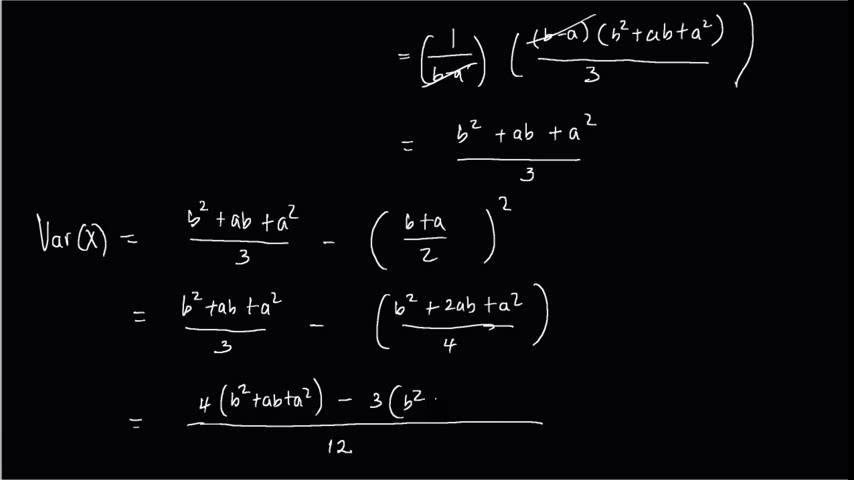 = (1/(b-a)) ((b-a)(b²+ab+a²)/3)
= (b² + ab + a²)/3
Var(X) = (b² + ab + a²)/3 - ((b+a)/2)²
= (b² + ab + a²)/3 - ((b² + 2ab + a²)/4)
= (4(b²+ab+a²) - 3(b²)/12